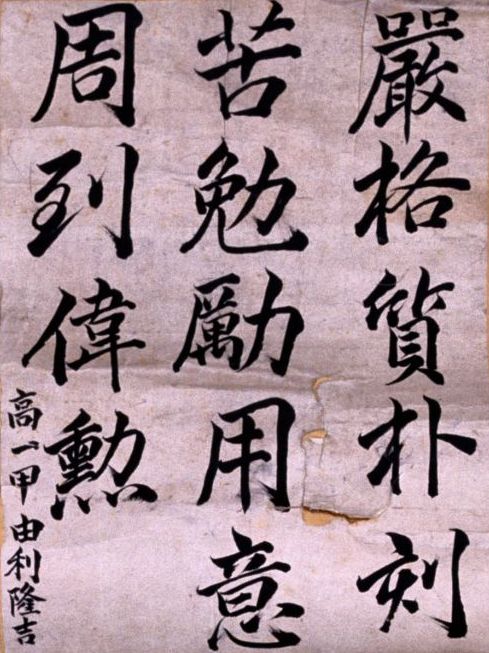 嚴格質朴刻
苦勉勵用意
周到偉勲
高一甲由利隆吉